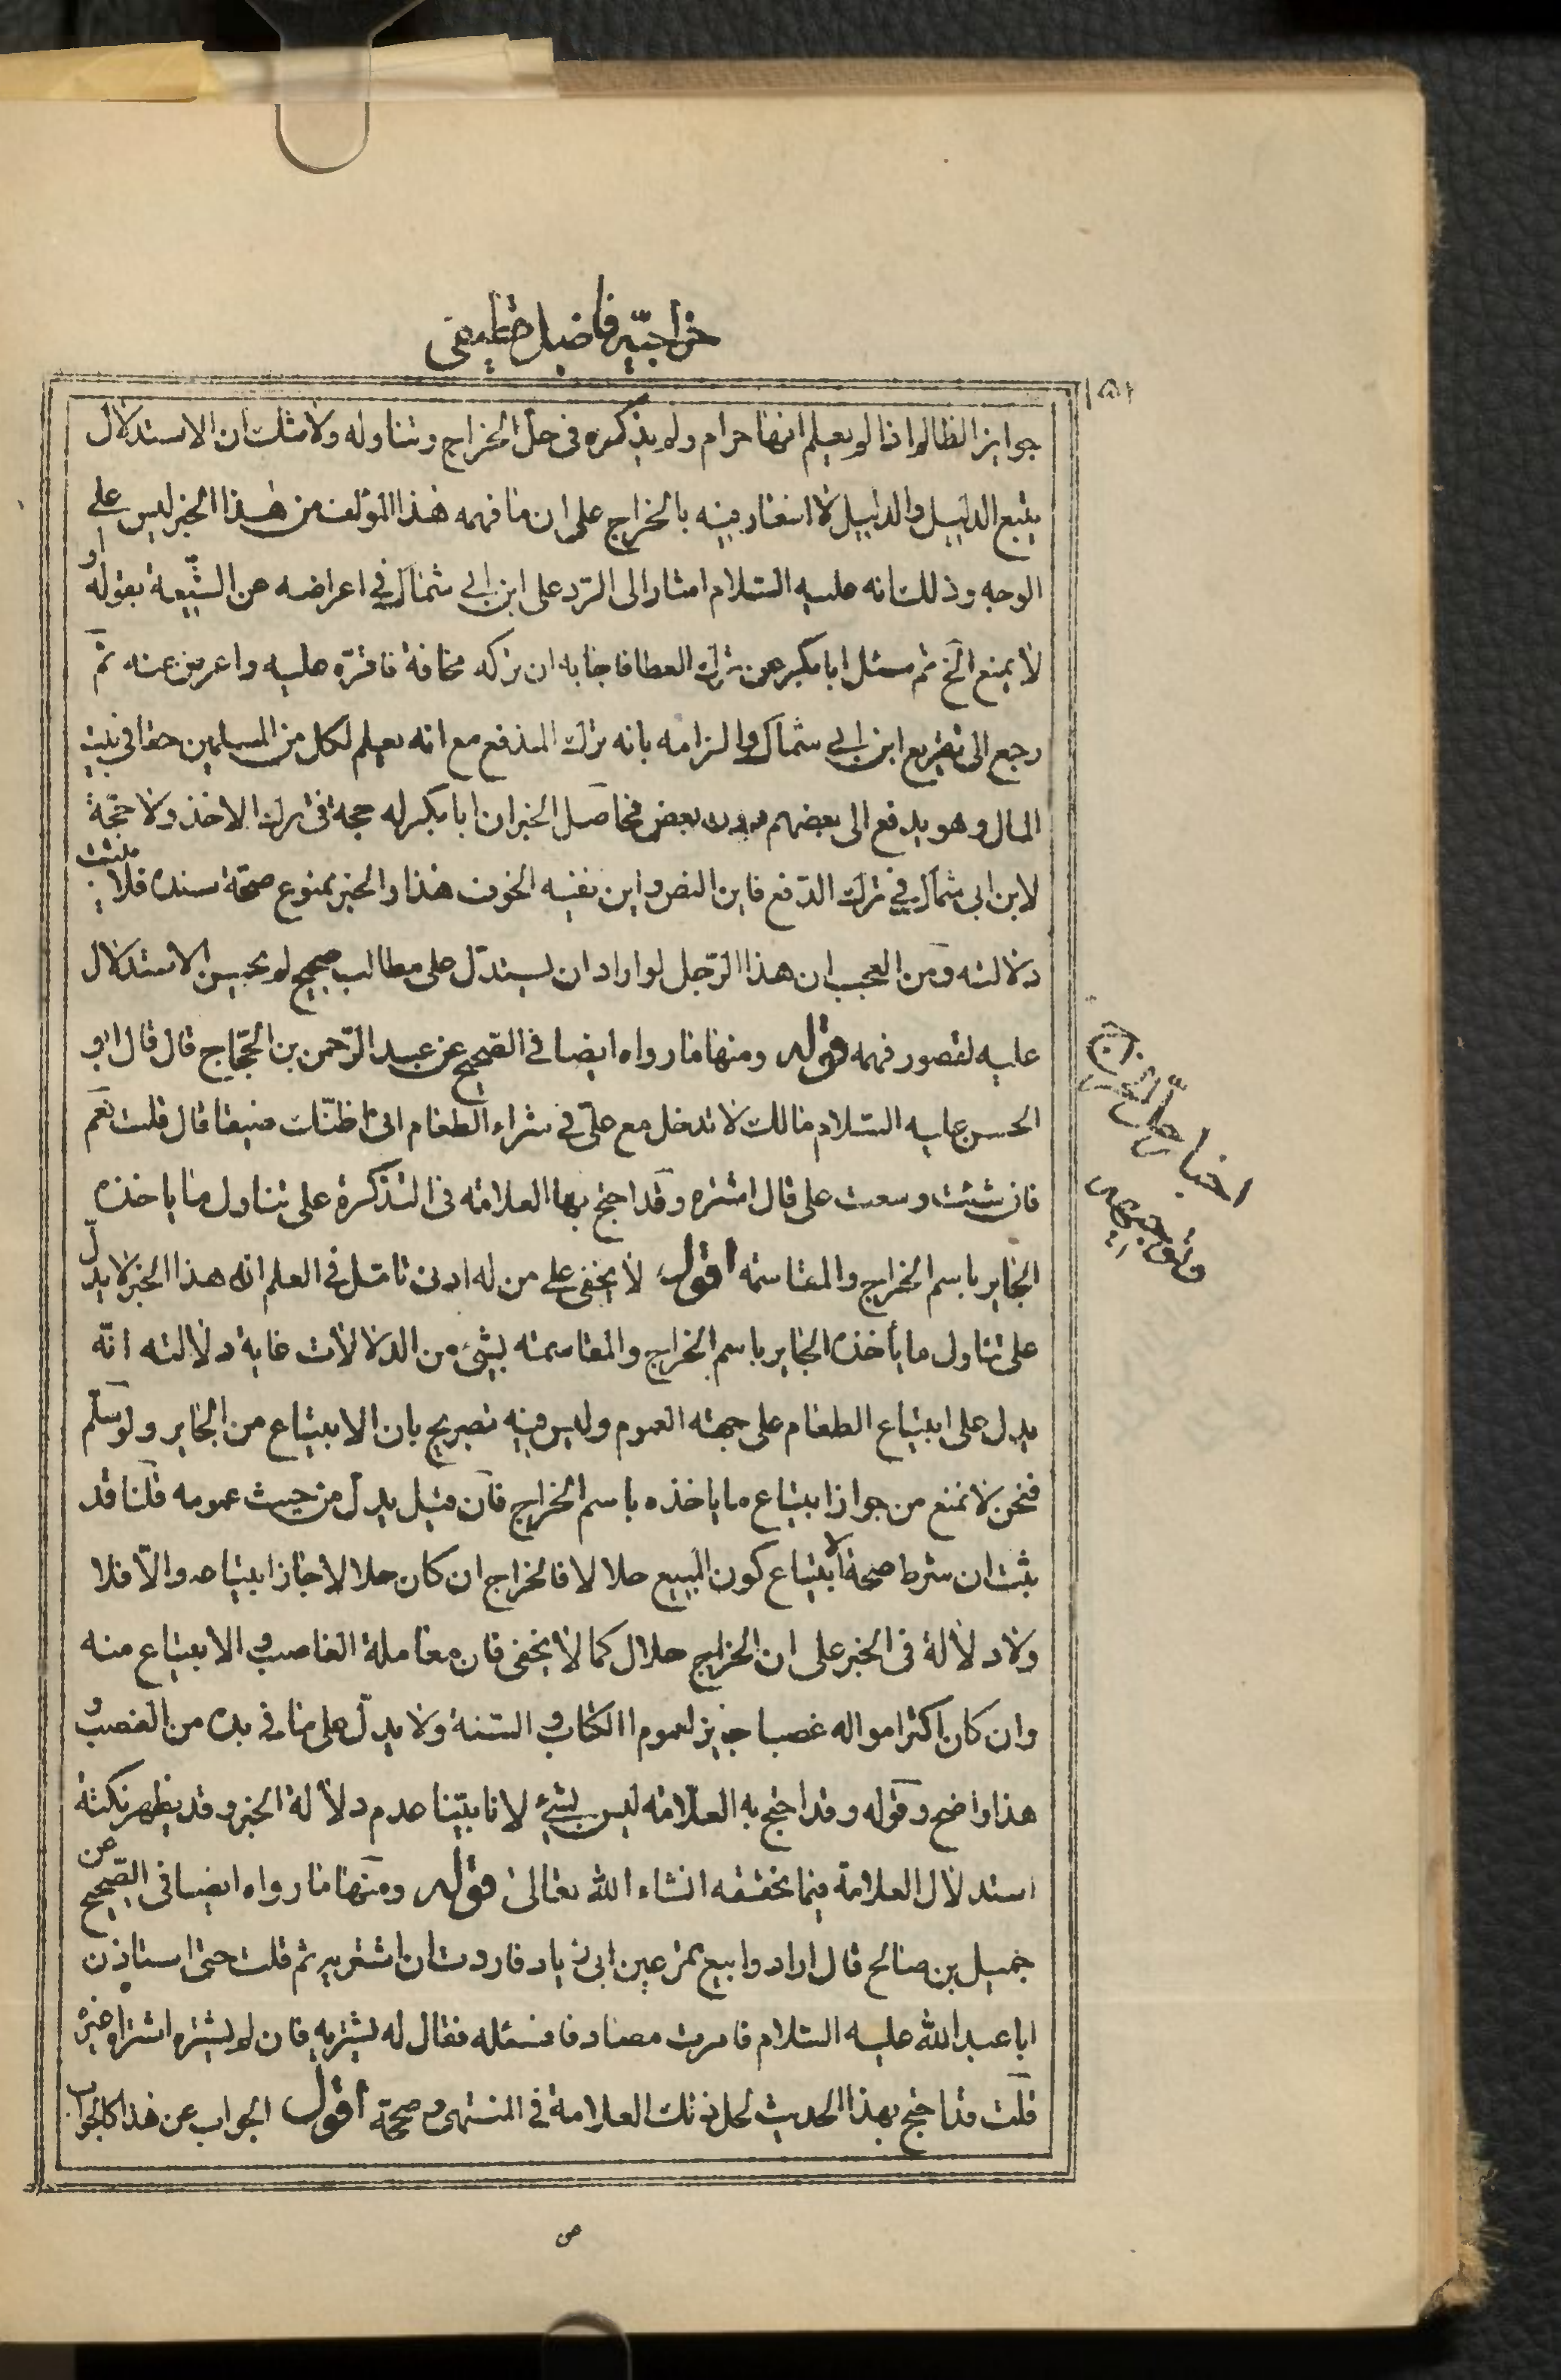 خراجيّه فاضل قطيفى
١٥٢
جوايز الظالم اذا لم يعلم انها حرام ولم يذكره فى حل الخراج وتناوله ولا شك ان الاستدلال
يتبع الدليل والدليل لا اشعار فيه بالخراج على ان ما فهمه هذا المؤلف من هذا الخبر ليس على
الوجه وذلك انه عليه السّلام اشار الى الرّد على ابن ابي شمال في اعراضه عن الشّيعة بقوله او
لا يمنع الخ ثم سئل ابا بكر عن ترك العطا فاجابه ان تركه مخافة فاقرّه عليه واعرض عنه ثمّ
رجع الى تقريع ابن ابي شمال والزامه بانه ترك المدفع مع انه يعلم لكل من المسلمين حقا في بيت
المال وهو يدفع الى بعضهم دون بعض فحاصل الخبر ان ابا بكر له حجة فى ترك الاخذ ولا حجّة
لابن ابى شمال في ترك الدّفع فاين النص واين نفيه الخوف هذا والخبر بمنوع صحّة سنده فلا يثبت
دلالته ومن العجب ان هذا الرّجل لو اراد ان يستدّل على مطالب صحيح لم يحسن الاستدلال
عليه لقصور فهمه قوله ومنها ما رواه ايضا في الصّحيح عن عبد الرّحمن بن الحجّاج قال قال ابو
الحسن عليه السّلام مالك لا تدخل مع علىّ في شراء الطعام انى اظنّك ضيقا قال قلت نعم
فان شئت وسعت على قال اشتره وقد احتج بها العلامه فى التذكرة على تناول ما ياخذه
الجاير باسم الخراج والمقاسمه اقول لا يخفى على من له ادنى تامّل في العلم انه هذا الخبر لا يدلّ
على تناول ما يأخذه الجاير باسم الخراج والمقاسمه بشئ من الدلالات غاية دلالته انّه
يدل على ابتياع الطعام على جهته العموم وليس فيه تصريح بان الابتياع من الجاير ولو سلّم
فنحن لا نمنع من جواز ابتياع ما ياخذه باسم الخراج فان قيل يدل من حيث عمومه قلنا قد
ثبت ان شرط صحة الابتياع كون المبيع حلالا فالخراج ان كان حلالا جاز ابتياعه والّا فلا
ولا دلالة فى الخبر على ان الخراج حلال كما لا يخفى فان معاملة الغاصب و الابتياع منه
وان كان اكثر امواله غصبا جايز لعموم الكتاب و السّنة ولا يدلّ على ما في يده من الغصب و
هذا واضح وقوله وقد احتج به العلّامه ليس بشئ لانا بيّنا عدم دلالة الخبر وقد يظهر نكتة
استدلال العلامة فيما نحققه انشاء الله تعالى قوله ومنها ما رواه ايضا فى الصّحيح عن
جميل بن صالح قال ارادوا بيع تمر عين ابى زياد فاردت ان اشتريه ثم قلت حتى استاذن
ابا عبد الله عليه السّلام فامرت مصادفا فسئله فقال له يشتريه فان لم يشتره اشتراه غيره
قلت قد احتج بهذا الحديث لحل ذلك العلامة في المنتهى و صحّحه اقول الجواب عن هذا كالجواب
اخبار حلّ الخراج
وتوجيهه
ص